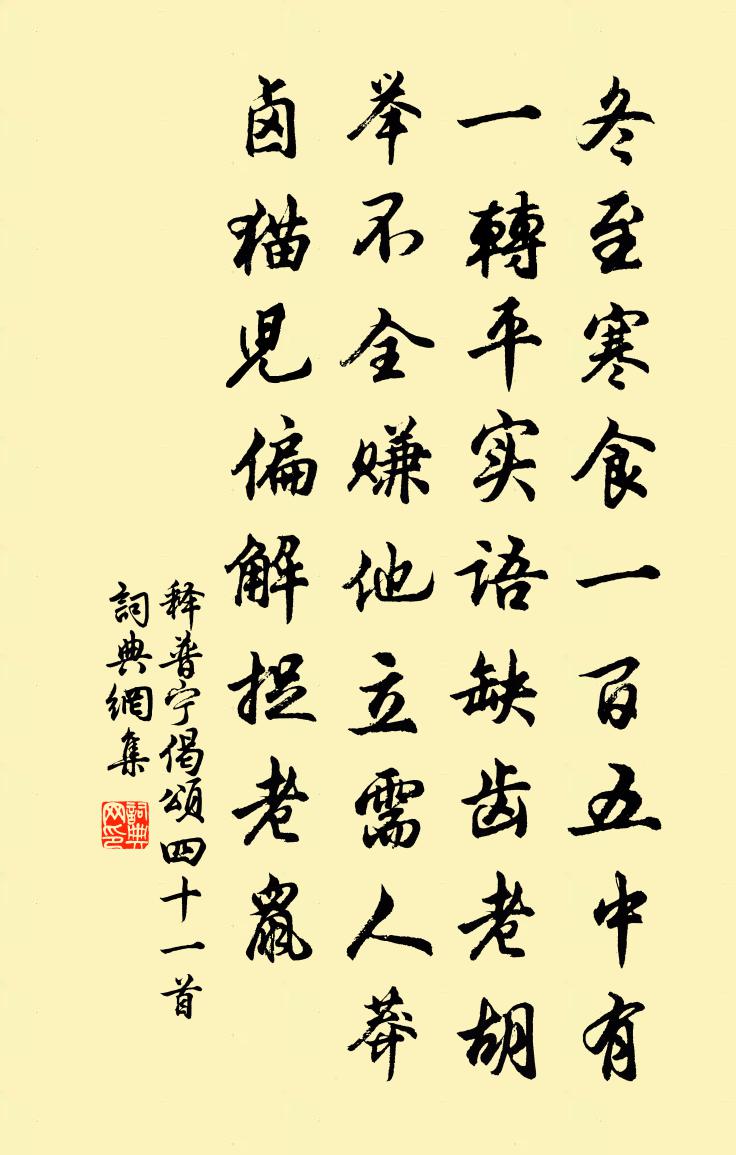 冬至寒食一百五中有
一轉平实语缺齿老胡
举不全赚他立需人莽
卤猫児偏解捉老鼠
释普宁偈頌四十一首
詞典網集
詞典网印